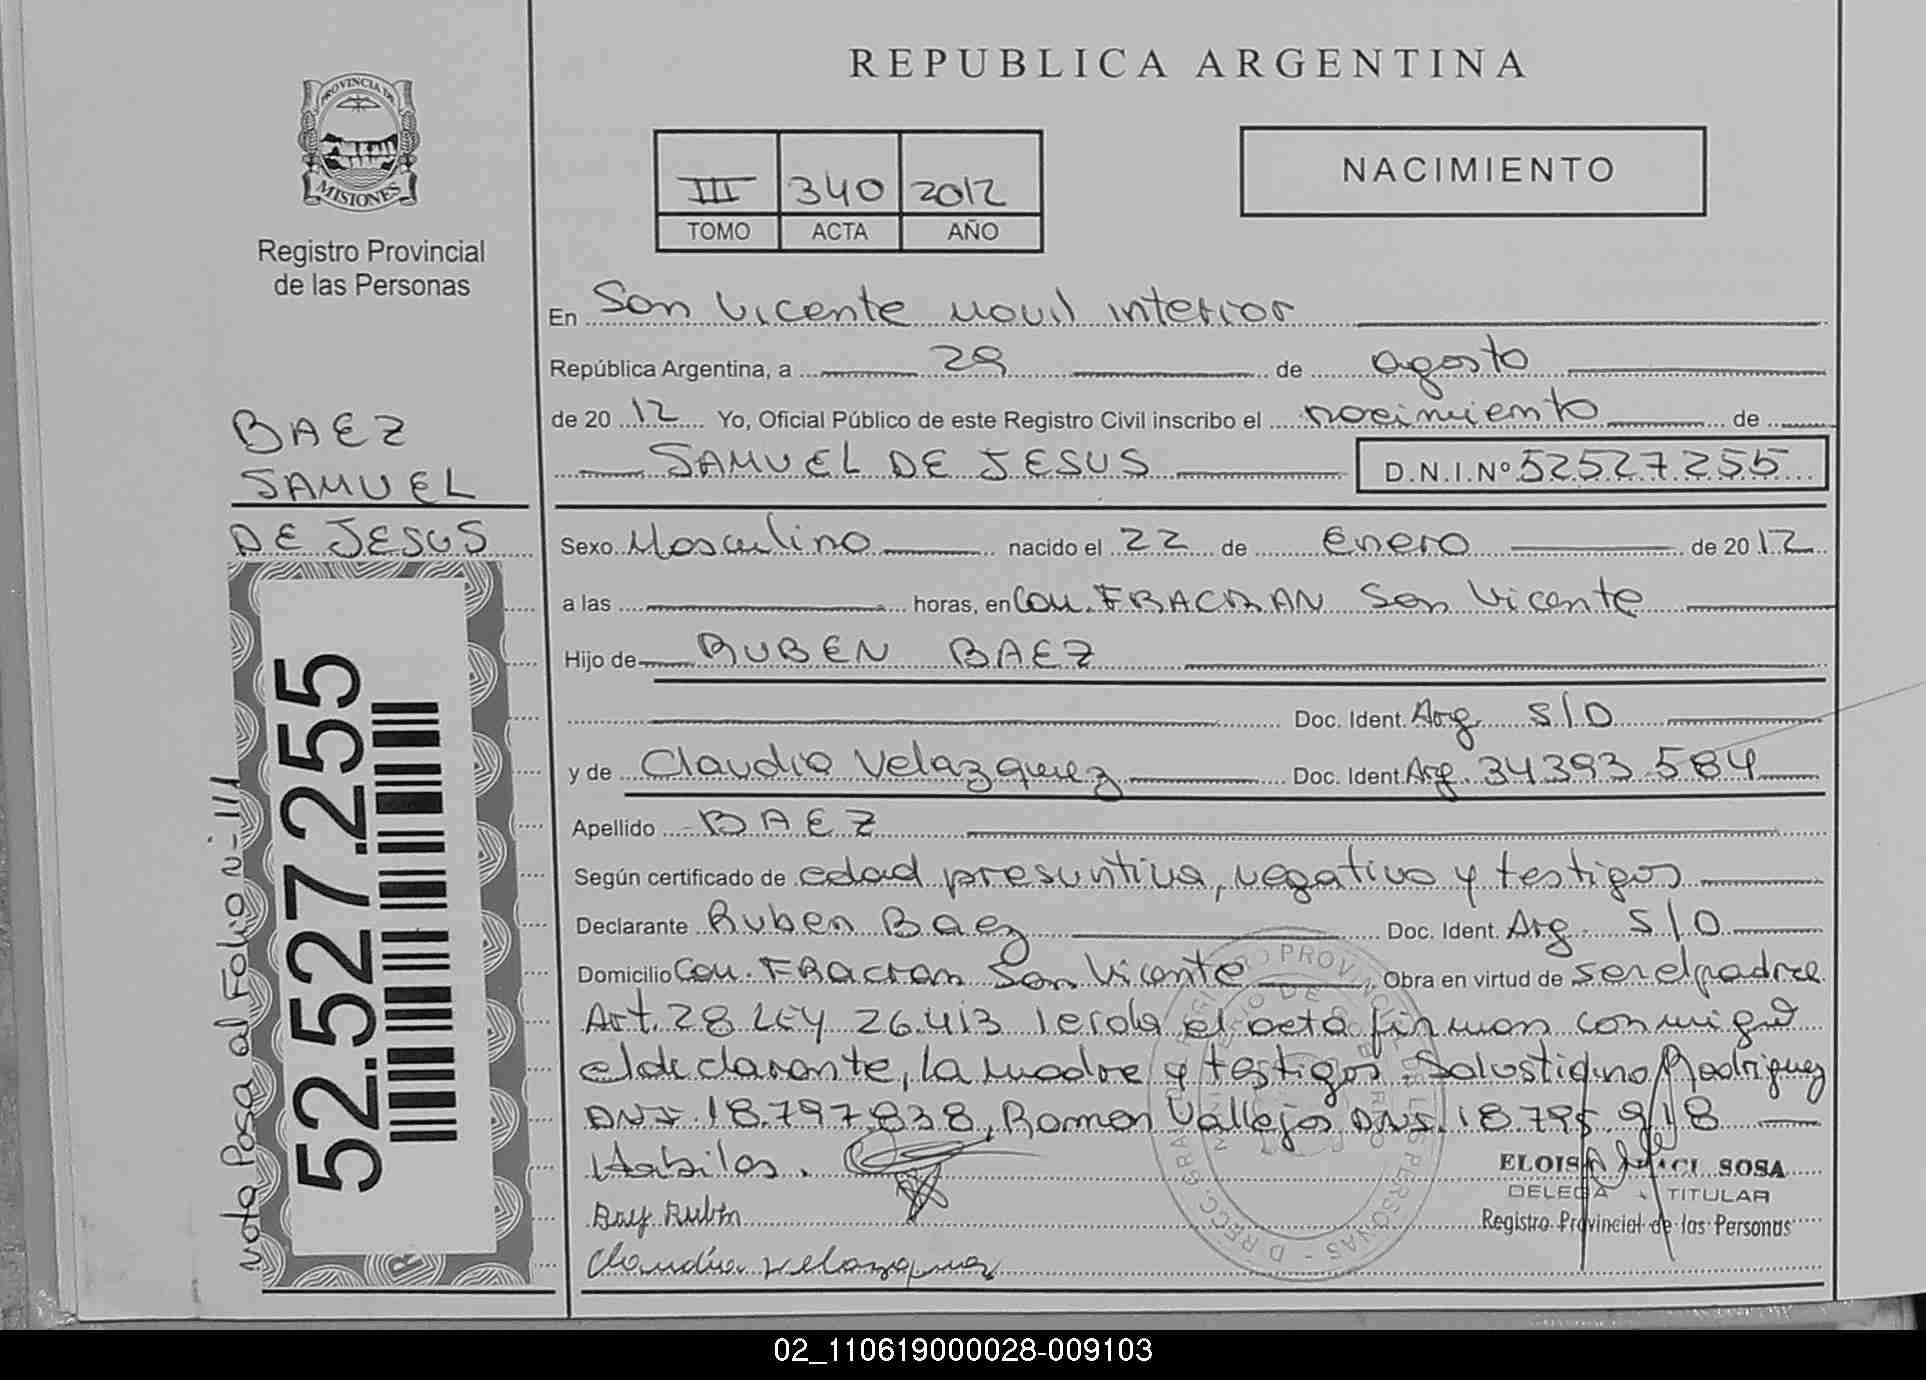 REPUBLICA ARGENTINA
PROVINCIA DE
MISIONES
Registro Provincial
de las Personas
III 340 2012
TOMO ACTA AÑO
NACIMIENTO
En San Vicente Movil interior
República Argentina, a 29 de agosto
de 2012 Yo, Oficial Público de este Registro Civil inscribo el nacimiento de
SAMUEL DE JESUS D.N.I.Nº 52527255
BAEZ
SAMUEL
DE JESUS
Sexo Masculino nacido el 22 de Enero de 2012
a las horas, en Col. FRACRAN San Vicente
Hijo de RUBEN BAEZ
Doc. Ident. Arg. S/D
y de Claudia Velazquez Doc. Ident. Arg. 34.393.584
Apellido BAEZ
Según certificado de edad presuntiva, negativo y testigos
Declarante Ruben Baez Doc. Ident. Arg. S/D
Domicilio Col. Fracran San Vicente Obra en virtud de ser el padre
Art. 28 LEY 26.413 leida el acta firman conmigo
el declarante, la madre y testigos Salustiano Rodriguez
DNI. 18.797.838, Ramon Vallejos DNI. 18.795.918
Habiles.
Baez Ruben
Claudia Velazquez
ELOISA SOSA
DELEGA TITULAR
Registro Provincial de las Personas
52.527.255
Nota Pasa al Folio Nº 111
02_110619000028-009103